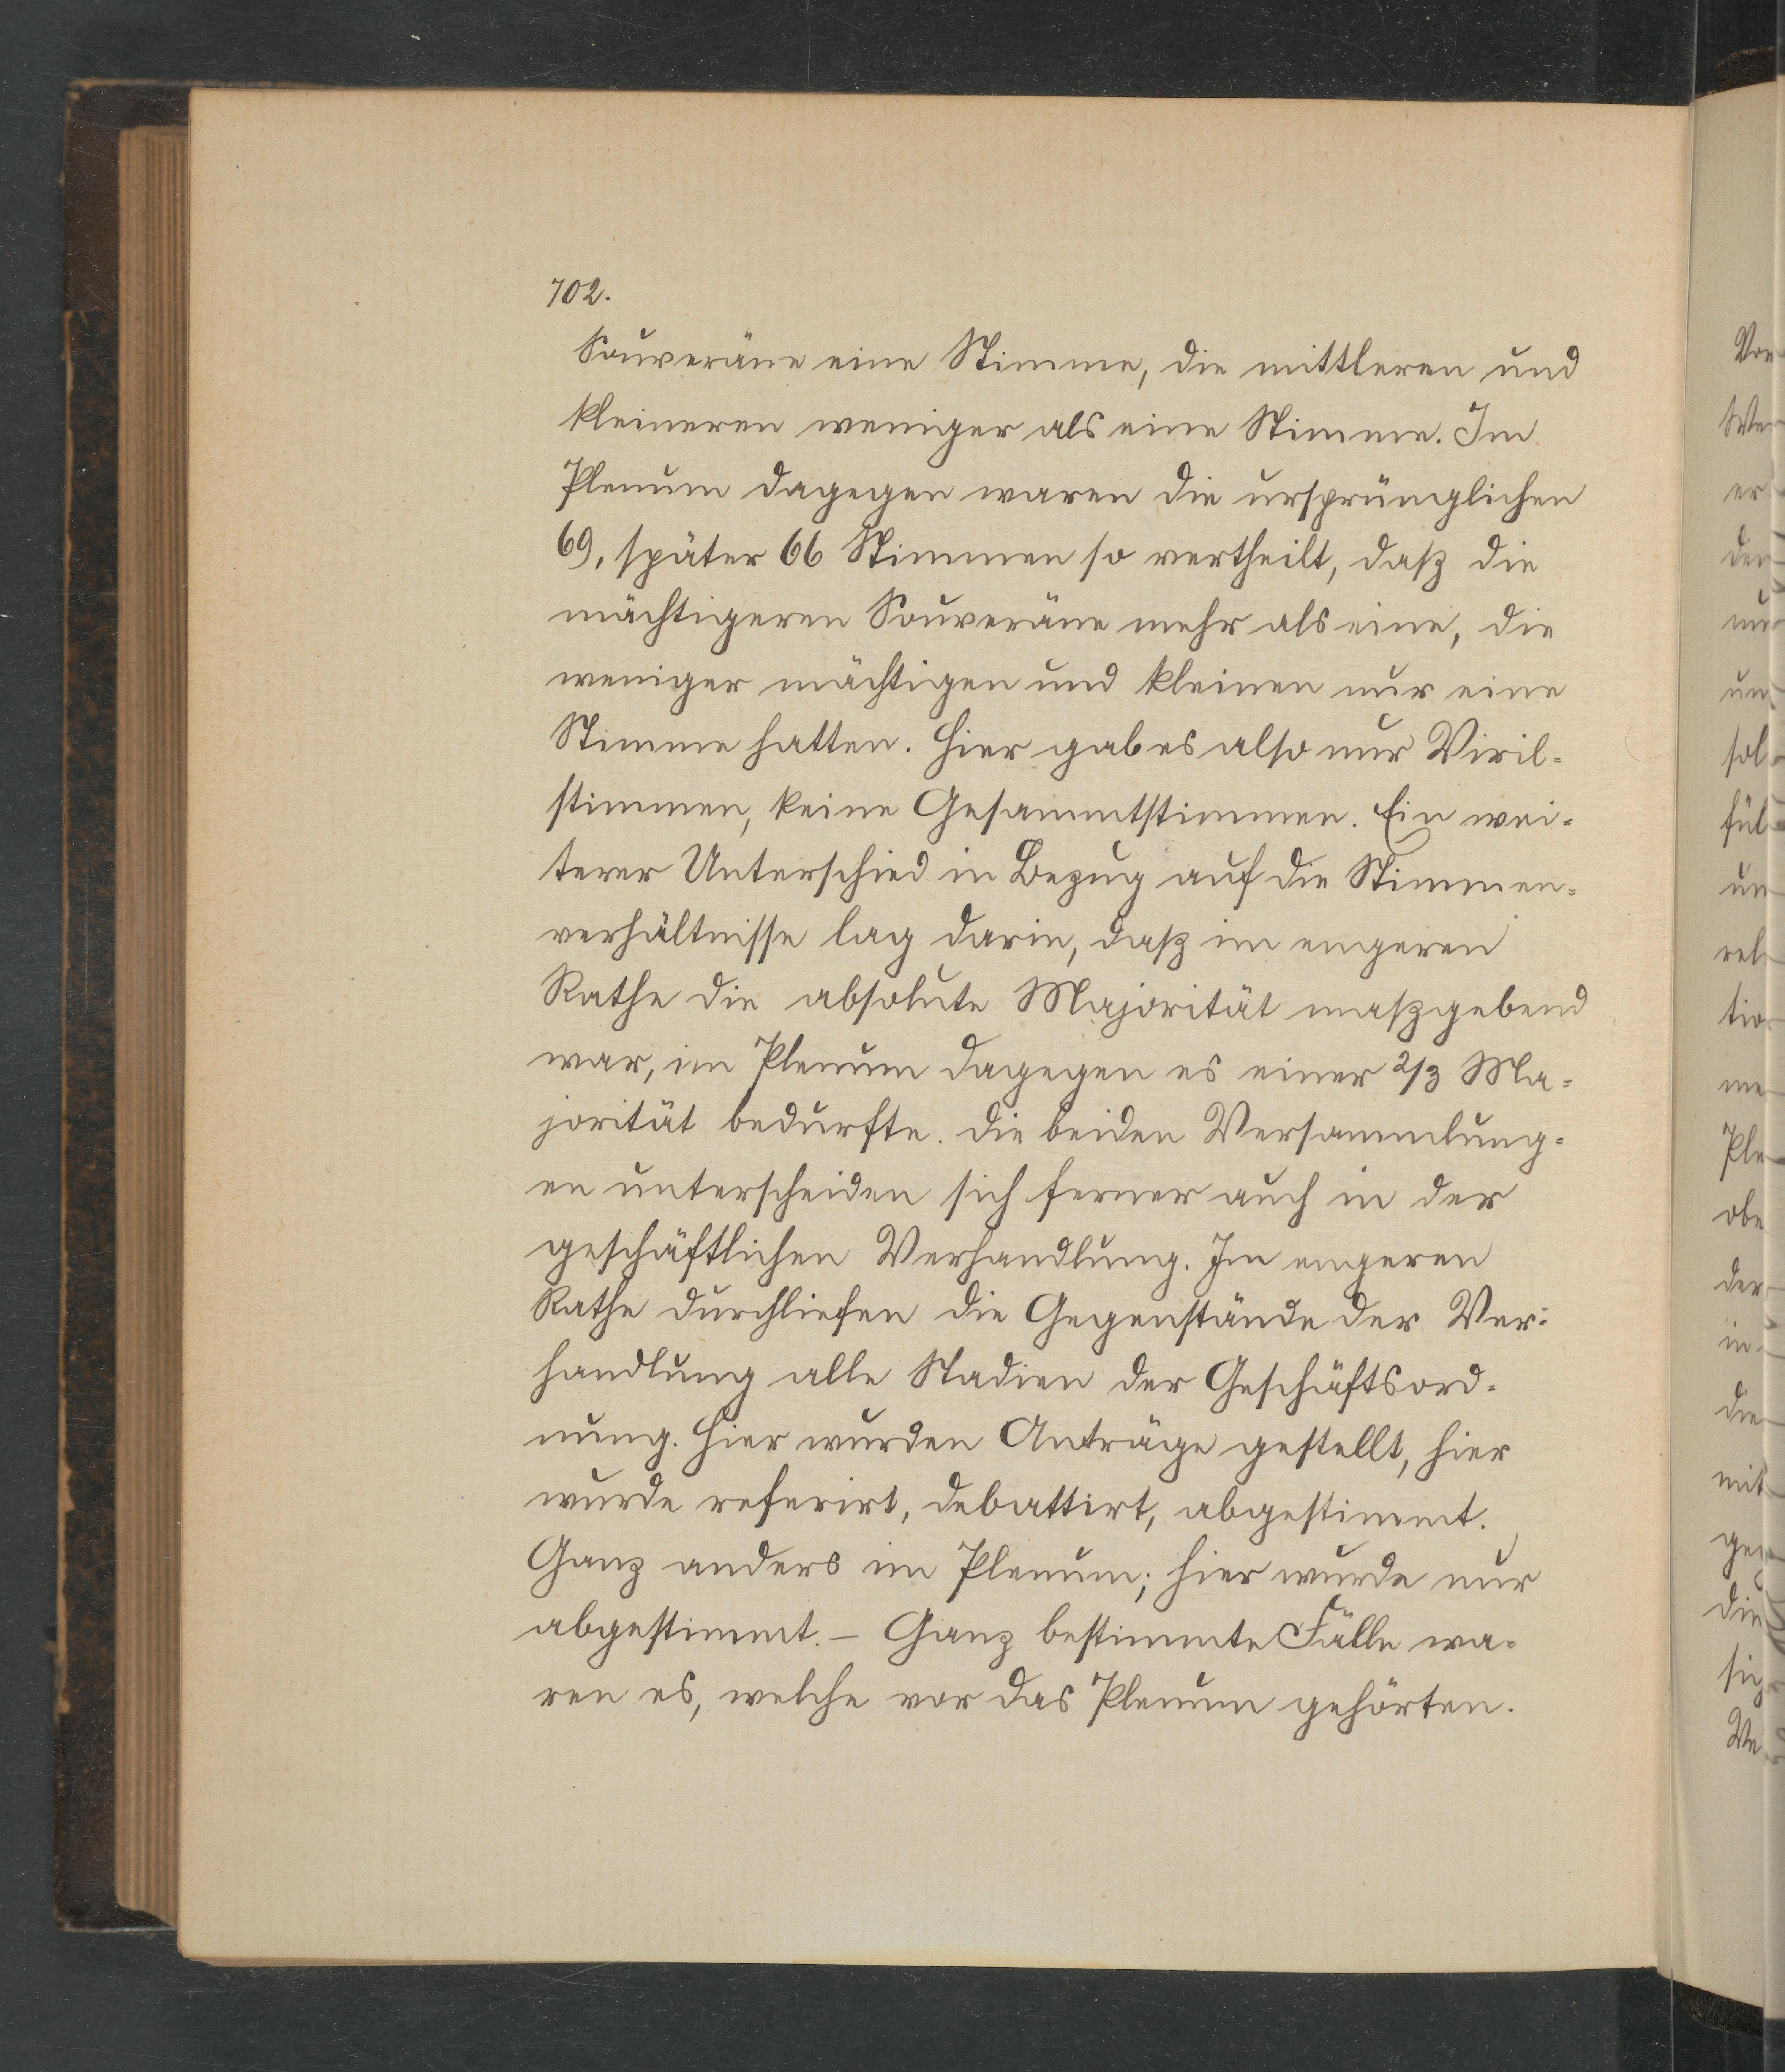 702.
Souveräne eine Stimme, die mittleren und
kleineren weniger als eine Stimme. Im
Plenum dagegen waren die ursprünglichen
69, später 66 Stimmen so vertheilt, daß die
mächtigeren Souveräne mehr als eine, die
weniger mächtigen und kleinen nur eine
Stimme hatten. Hier gab es also nur Viril-
stimmen, keine Gesammtstimmen. Ein wei-
terer Unterschied in Bezug auf die Stimmen-
verhältnisse lag darin, daß im engeren
Rathe die absolute Majorität maßgebend
war, im Plenum dagegen es einer 2/3 Ma-
jorität bedurfte. Die beiden Versammlung-
en unterscheiden sich ferner auch in der
geschäftlichen Verhandlung. Im engeren
Rathe durchliefen die Gegenstände der Ver-
handlung alle Stadien der Geschäftsord-
nung. Hier wurden Anträge gestellt, hier
wurde referirt, debattirt, abgestimmt.
Ganz anders im Plenum; hier wurde nur
abgestimmt. – Ganz bestimmte Fälle wa-
ren es, welche vor das Plenum gehörten.